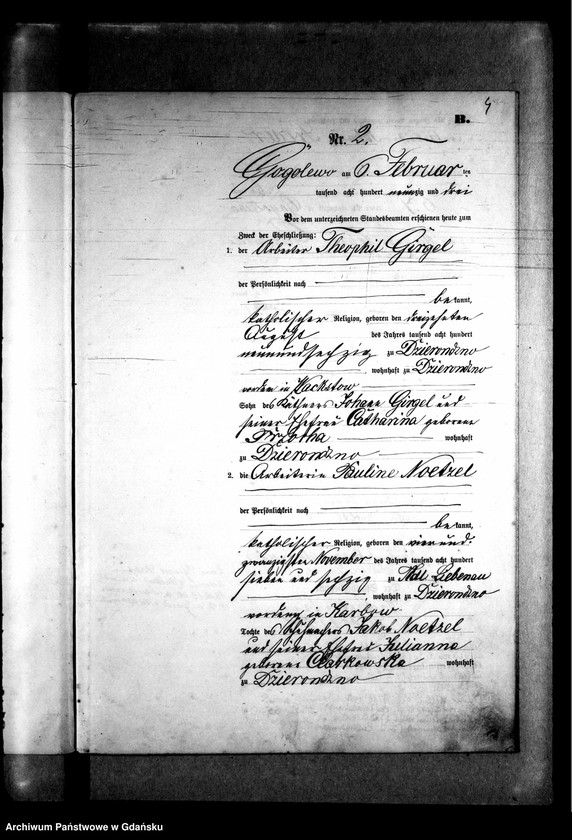 4
B.
Nr. 2.
Gogolewo am 6. Februar ten
tausend acht hundert neunzig und drei
Vor dem unterzeichneten Standesbeamten erschienen heute zum
Zweck der Eheschließung:
1. der Arbeiter Theophil Görgel
der Persönlichkeit nach
be kannt,
katholischer Religion, geboren den dreizehnten
August des Jahres tausend acht hundert
neunundsechzig zu Dzierondzno
, wohnhaft zu Dzierondzno
vordem in Wackstow
Sohn des Käthners Johann Görgel und
seiner Ehefrau Catharina geborene
wohnhaft
zu Dzierondzno
2. die Arbeiterin Pauline Noetzel
der Persönlichkeit nach
be kannt,
katholischer Religion, geboren den vierund-
zwanzigsten November des Jahres tausend acht hundert
sieben und sechzig zu Adl Liebenau
, wohnhaft zu Dzierondzno
vordem in Karbow
Tochter des Schuhmachers Jakob Noetzel
und seiner Ehefrau Julianna
geborene Czarkowska wohnhaft
zu Dzierondzno
Archiwum Państwowe w Gdańsku